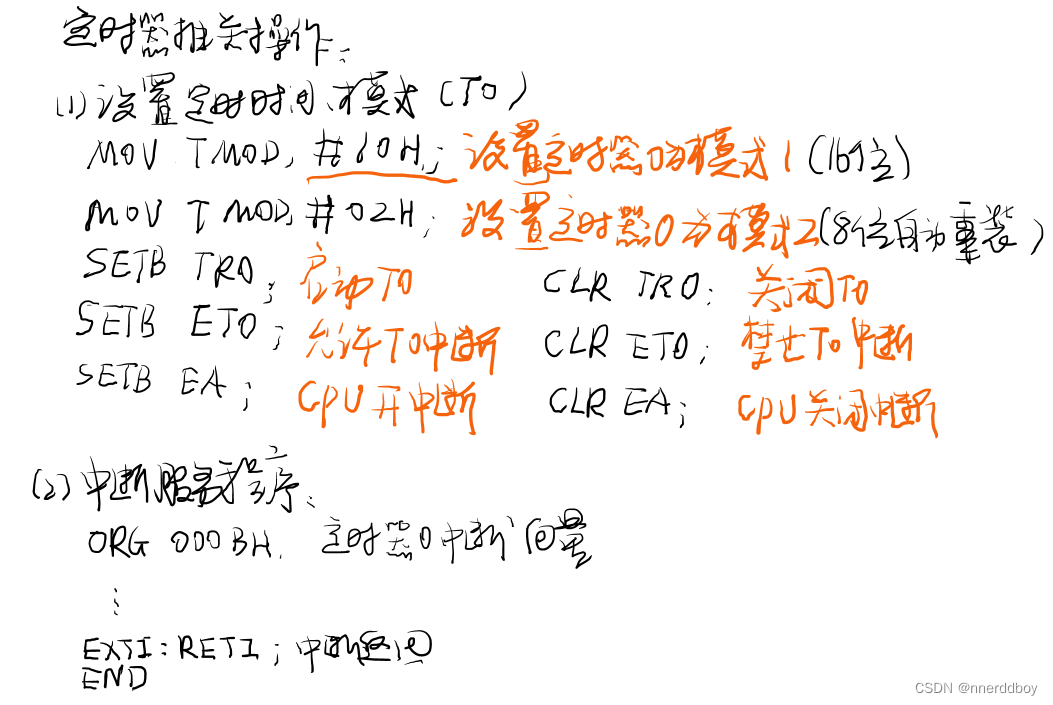 定时器相关操作:
(1)设置定时时间、模式(T0)
MOV TMOD, #10H; 设置定时器0为模式1(16位)
MOV TMOD, #02H; 设置定时器0为模式2(8位自动重装)
SETB TR0; 启动T0 CLR TR0; 关闭T0
SETB ET0; 允许T0中断 CLR ET0; 禁止T0中断
SETB EA; CPU开中断 CLR EA; CPU关闭中断
(2)中断服务程序:
ORG 000BH. 定时器0中断向量
⋮
EXTI: RETI; 中断返回
END
CSDN @nnerddboy